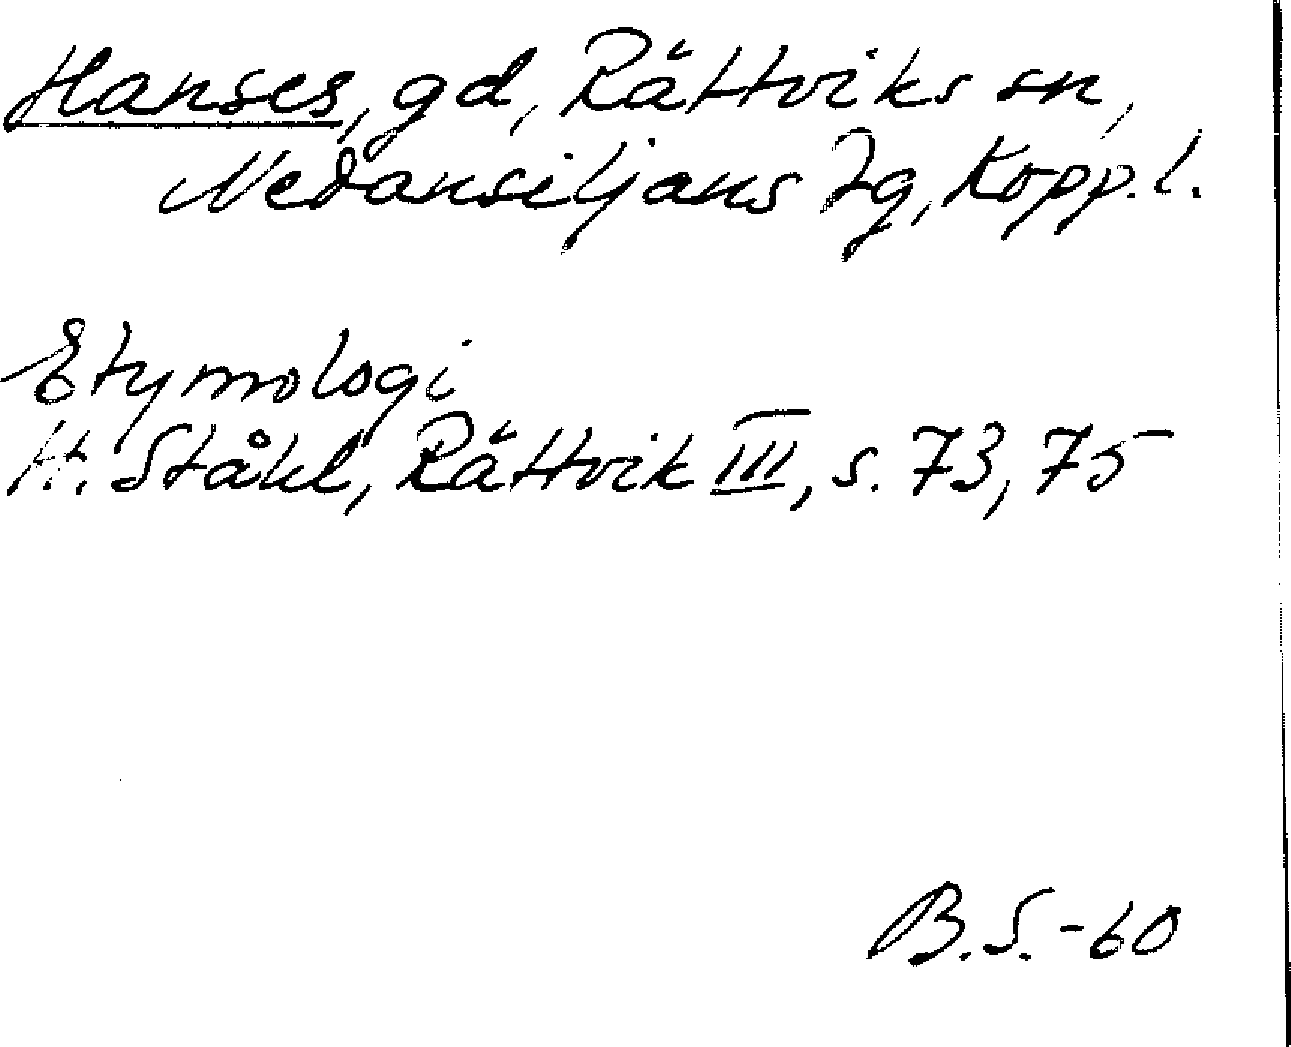 Hanses, gd, Rättviks sn,
Nedansiljans tg, Kopp.l.
Etymologi
H. Ståhl, Rättvik III, s. 73, 75
B.S.-60